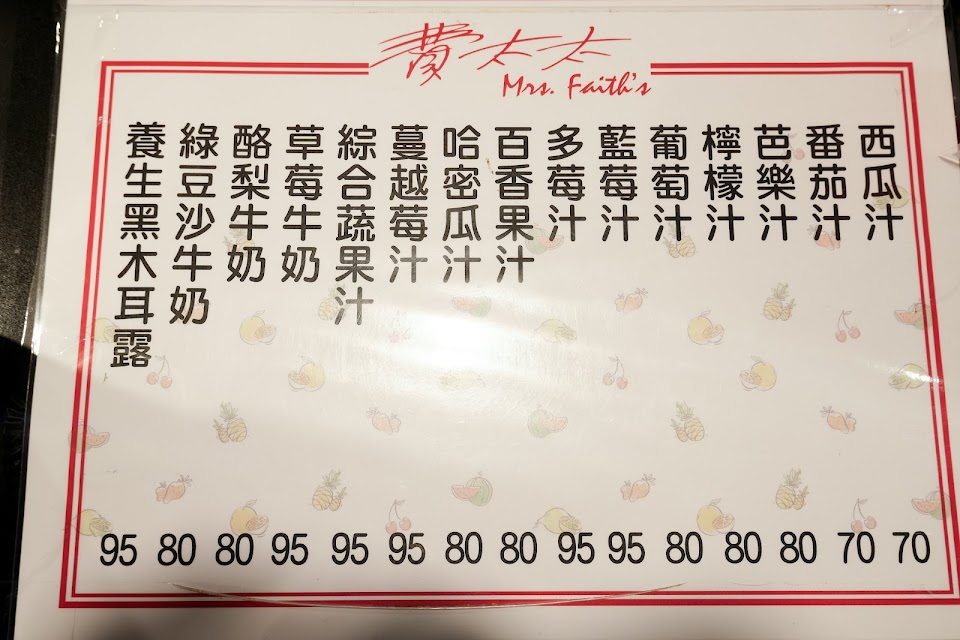 費太太
Mrs. Faith's
西瓜汁 70
番茄汁 70
芭樂汁 80
檸檬汁 80
葡萄汁 80
藍莓汁 95
多莓汁 95
百香果汁 80
哈密瓜汁 80
蔓越莓汁 95
綜合蔬果汁 95
草莓牛奶 95
酪梨牛奶 80
綠豆沙牛奶 80
養生黑木耳露 95